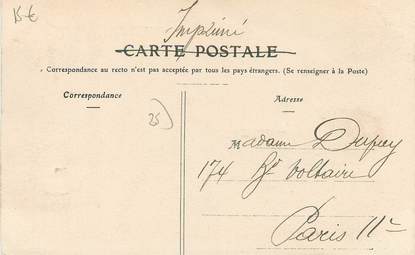 15 €
Imprimé
CARTE POSTALE
Correspondance au recto n'est pas acceptée par tous les pays étrangers. (Se renseigner à la Poste)
Correspondance
Adresse
25
Madame Dupuy
174 Bd Voltaire
Paris 11e